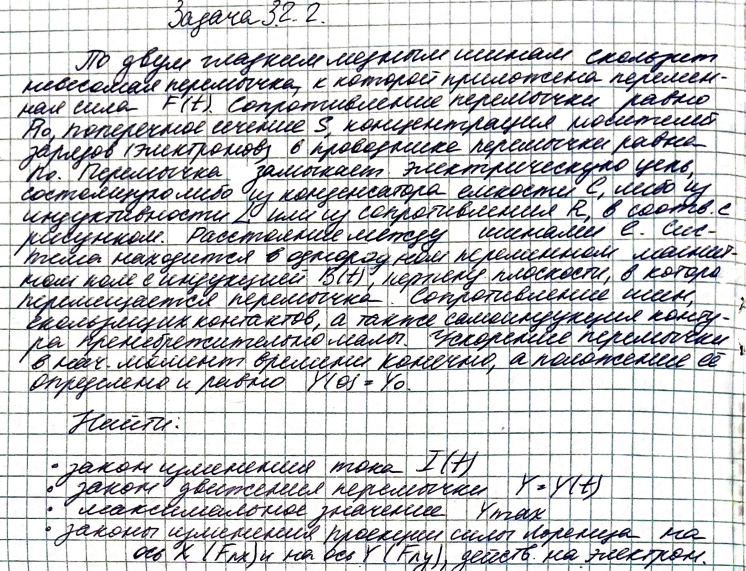 Задача 3.2.2.
По двум гладким медным шинам скользит
невесомая перемычка, к которой приложена перемен-
ная сила F(t). Сопротивление перемычки равно
R₀, поперечное сечение S, концентрация носителей
зарядов (электронов) в проводнике перемычки равна
n₀. Перемычка замыкает электрическую цепь,
состоящую либо из конденсатора емкости C, либо из
индуктивности L или из сопротивления R, в соотв. с
рисунком. Расстояние между шинами l. Сис-
тема находится в однородном переменном магнит-
ном поле с индукцией B(t), перпенд. плоскости, в которо
перемещается перемычка. Сопротивление шин,
скользящих контактов, а также самоиндукция конту-
ра пренебрежительно малы. Ускорение перемычки
в нач. момент времени конечно, а положение её
определено и равно Y(0) = Y₀.
Найти:
• закон изменения тока I(t)
• закон движения перемычки Y = Y(t)
• максимальное значение Ymax
• законы изменения проекции силы Лоренца на
ось X (Fлx) и на ось Y (Fлy), действ. на электрон.